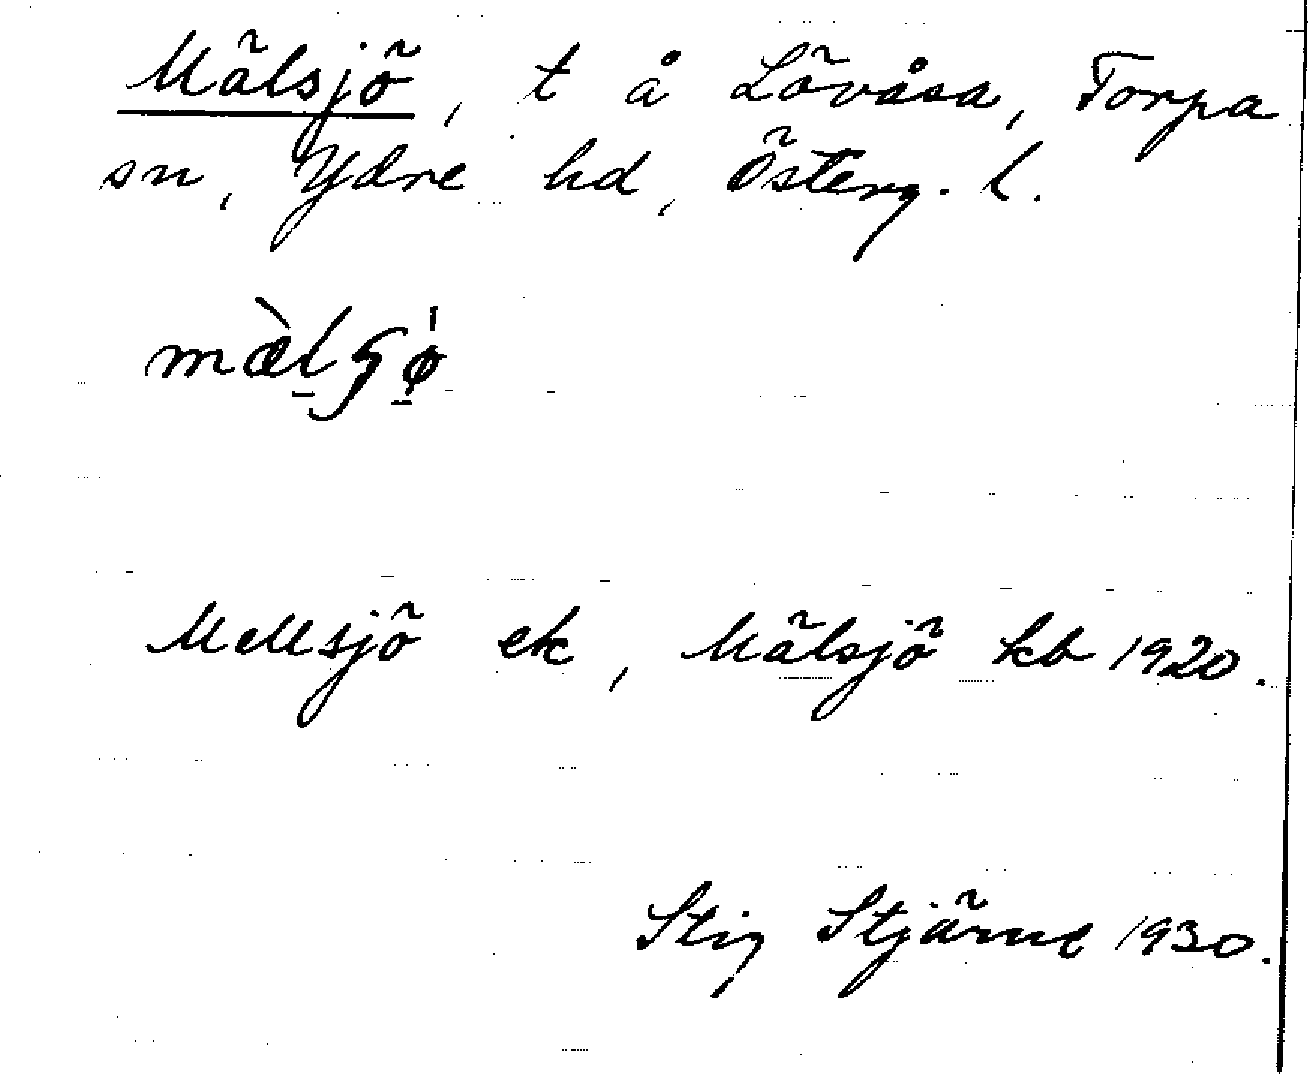 Mälsjö, t å Lövåsa, Torpa
sn, Ydre hd, Österg. l.
mæ̀lʂø̍
Mellsjö ek, Mälsjö kb 1920.
Stig Stjärne 1930.